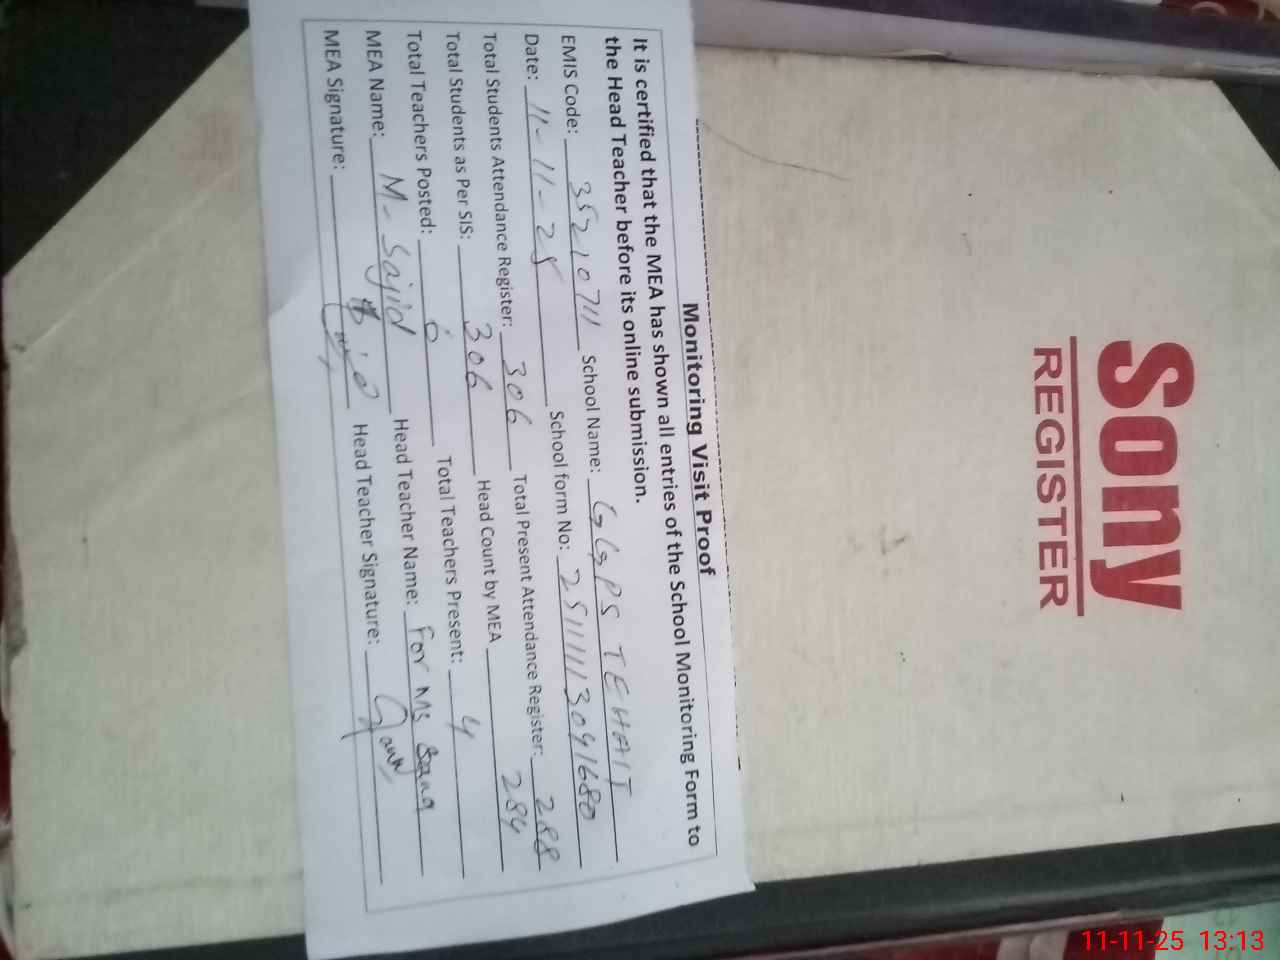 Monitoring Visit Proof
It is certified that the MEA has shown all entries of the School Monitoring Form to
the Head Teacher before its online submission.
EMIS Code: 35210711 School Name: GGPS TEHAIT
Date: 11-11-25 School form No: 25111113041680
Total Students Attendance Register: 306 Total Present Attendance Register: 288
Total Students as Per SIS: 306 Head Count by MEA 284
Total Teachers Posted: 6 Total Teachers Present: 4
MEA Name: M-Sajid Head Teacher Name: For Ms Sana
MEA Signature: Head Teacher Signature:
Sony
REGISTER
11-11-25 13:13